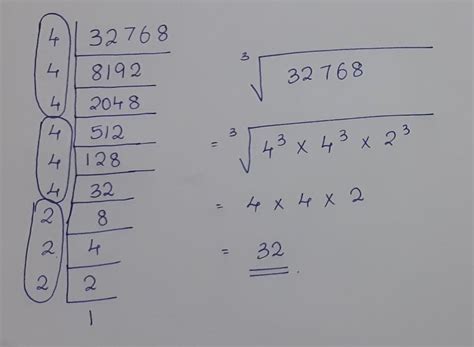 4 | 32768
4 | 8192
4 | 2048
4 | 512
4 | 128
4 | 32
2 | 8
2 | 4
2 | 2
1
³√32768
= ³√4³ × 4³ × 2³
= 4 × 4 × 2
= 32.